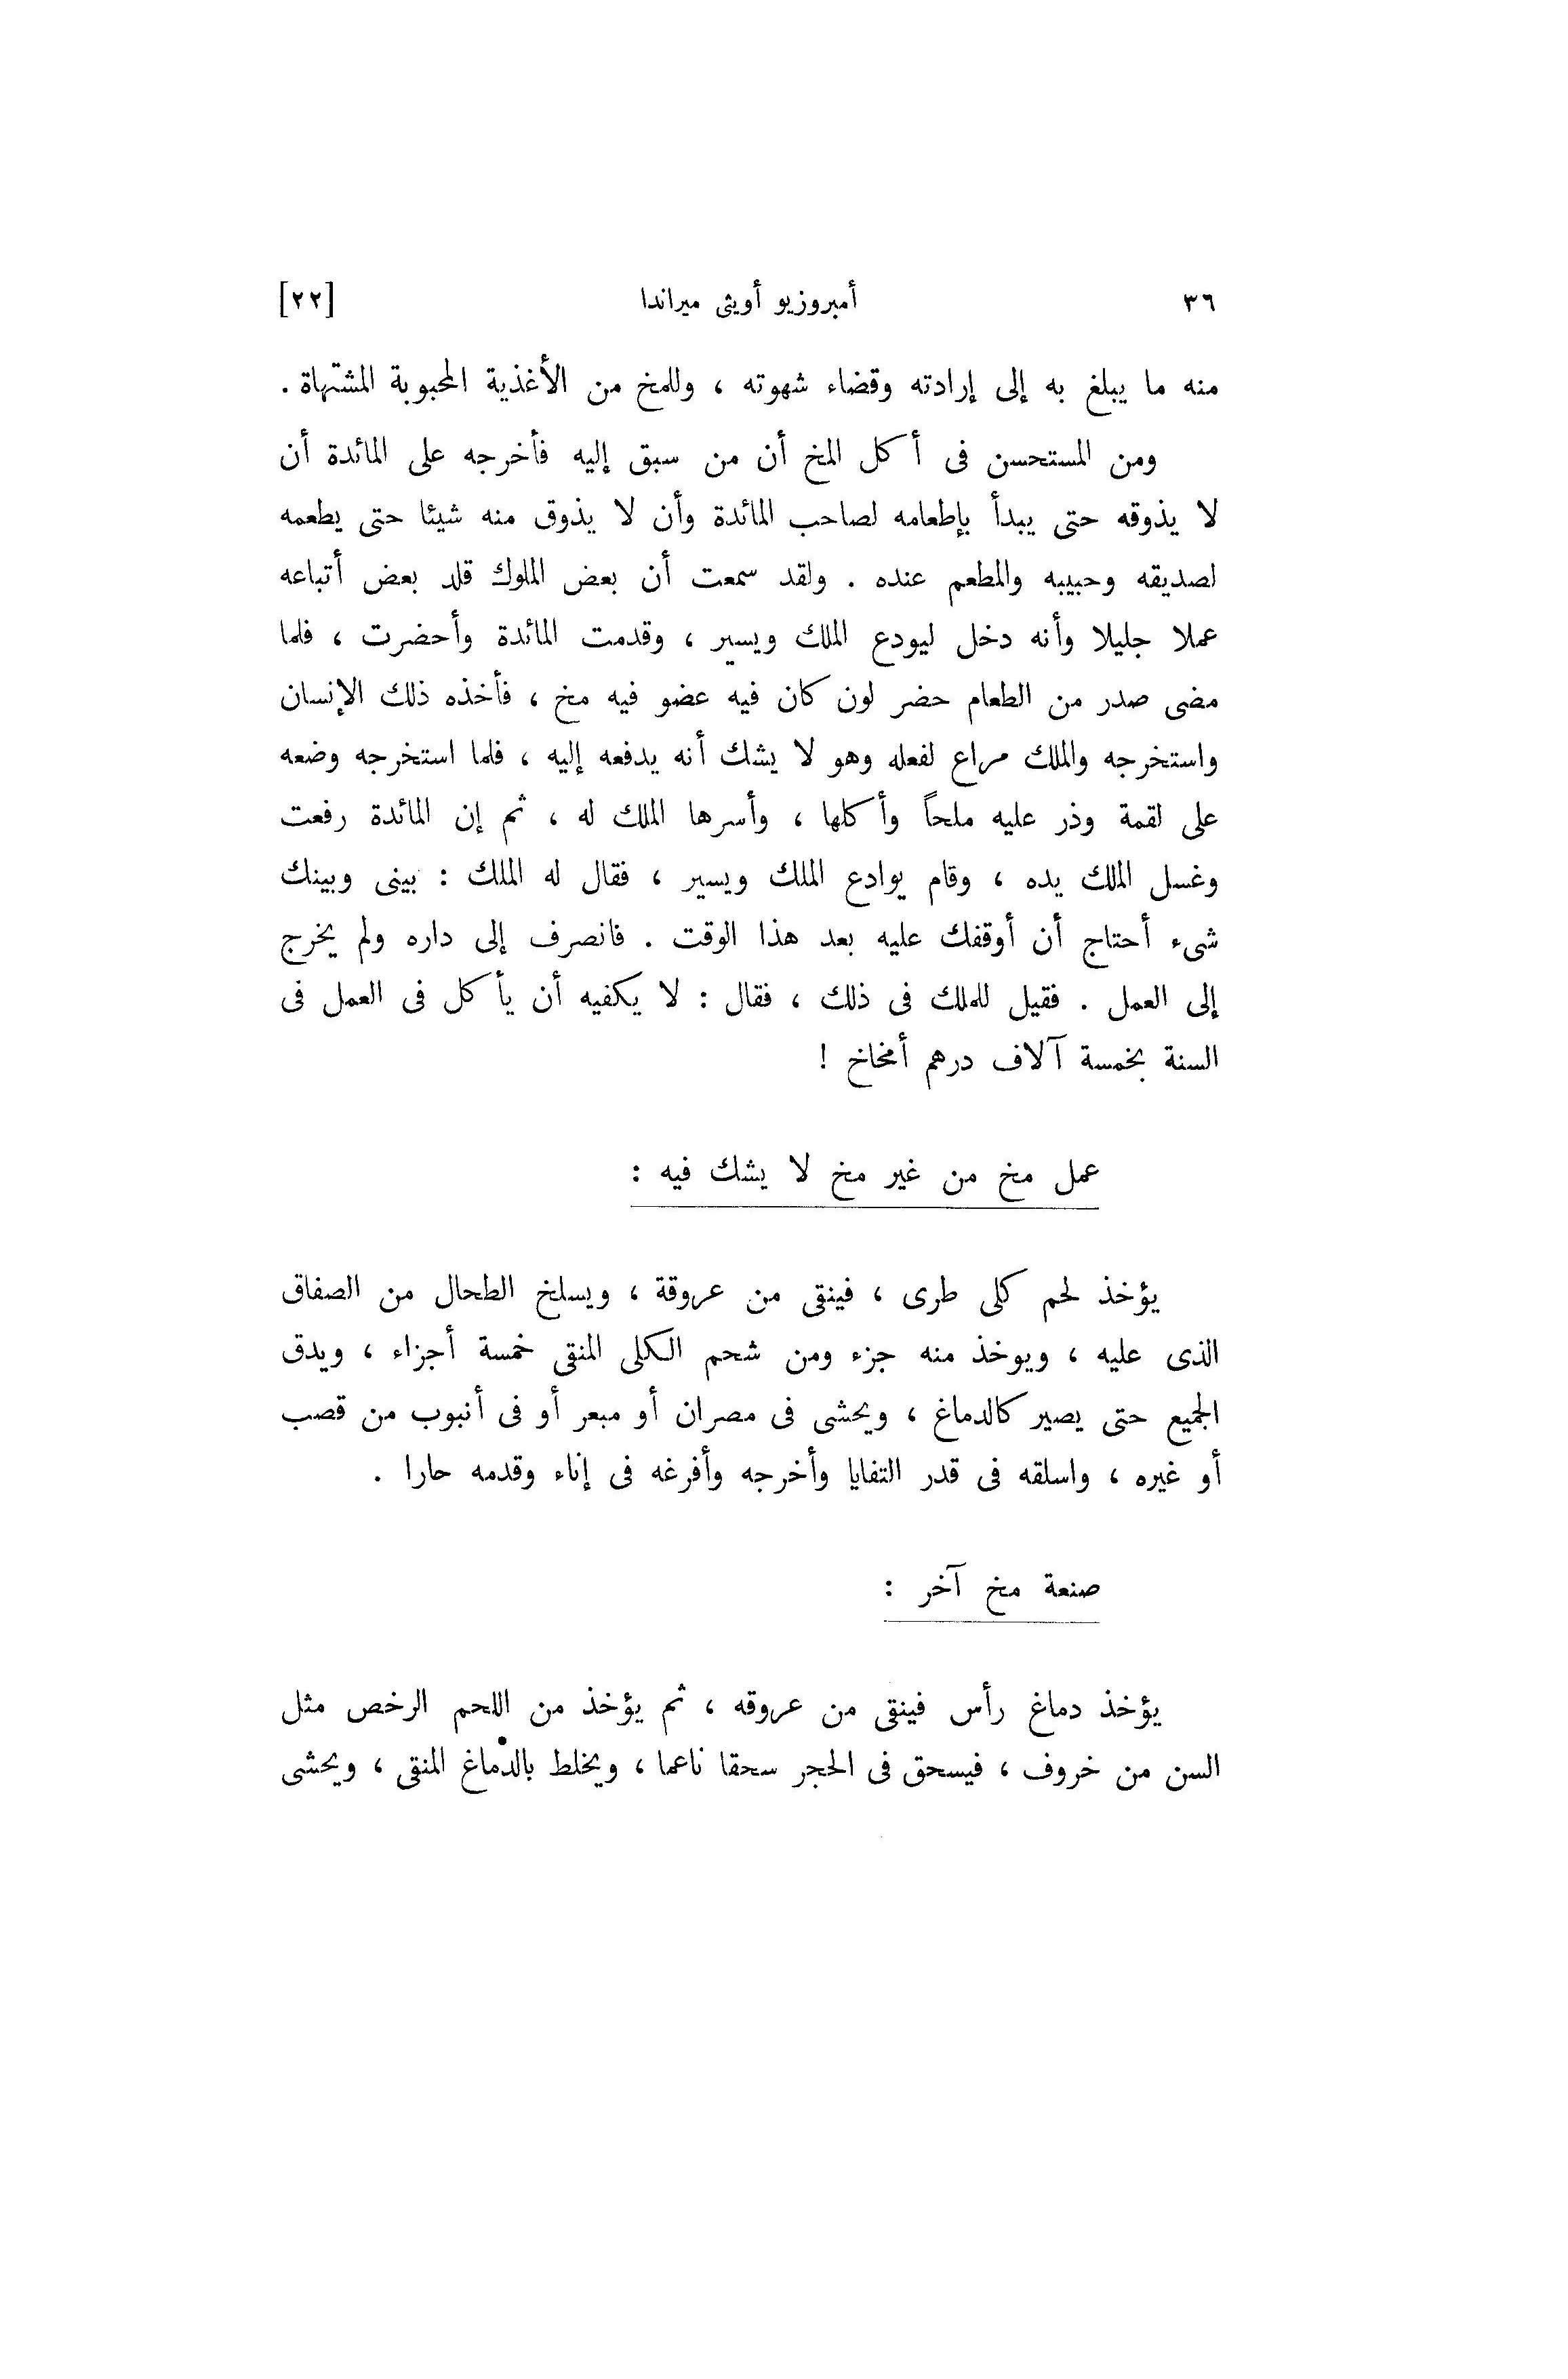 ٣٦ أمبروزيو أويثى ميراندا [٢٢]
منه ما يبلغ به إلى إرادته وقضاء شهوته ، وللمخ من الأغذية المحبوبة المشتهاة .
ومن المستحسن فى أكل المخ أن من سبق إليه فأخرجه على المائدة أن
لا يذوقه حتى يبدأ بإطعامه لصاحب المائدة وأن لا يذوق منه شيئا حتى يطعمه
لصديقه وحبيبه والمطعم عنده . ولقد سمعت أن بعض الملوك قلد بعض أتباعه
عملا جليلا وأنه دخل ليودع الملك ويسير ، وقدمت المائدة وأحضرت ، فلما
مضى صدر من الطعام حضر لون كان فيه عضو فيه مخ ، فأخذه ذلك الإنسان
واستخرجه والملك مراع لفعله وهو لا يشك أنه يدفعه إليه ، فلما استخرجه وضعه
على لقمة وذر عليه ملحاً وأكلها ، وأسرها الملك له ، ثم إن المائدة رفعت
وغسل الملك يده ، وقام يوادع الملك ويسير ، فقال له الملك : بينى وبينك
شىء أحتاج أن أوقفك عليه بعد هذا الوقت . فانصرف إلى داره ولم يخرج
إلى العمل . فقيل للملك فى ذلك ، فقال : لا يكفيه أن يأكل فى العمل فى
السنة بخمسة آلاف درهم أمخاخ !
عمل مخ من غير مخ لا يشك فيه :
يؤخذ لحم كلى طرى ، فينقى من عروقة ، ويسلخ الطحال من الصفاق
الذى عليه ، ويوخذ منه جزء ومن شحم الكلى المنقى خمسة أجزاء ، ويدق
الجميع حتى يصير كالدماغ ، ويحشى فى مصران أو مبعر أو فى أنبوب من قصب
أو غيره ، واسلقه فى قدر التفايا وأخرجه وأفرغه فى إناء وقدمه حارا .
صنعة مخ آخر :
يؤخذ دماغ رأس فينقى من عروقه ، ثم يؤخذ من اللحم الرخص مثل
السن من خروف ، فيسحق فى الحجر سحقا ناعما ، ويخلط بالدماغ المنقى ، ويحشى